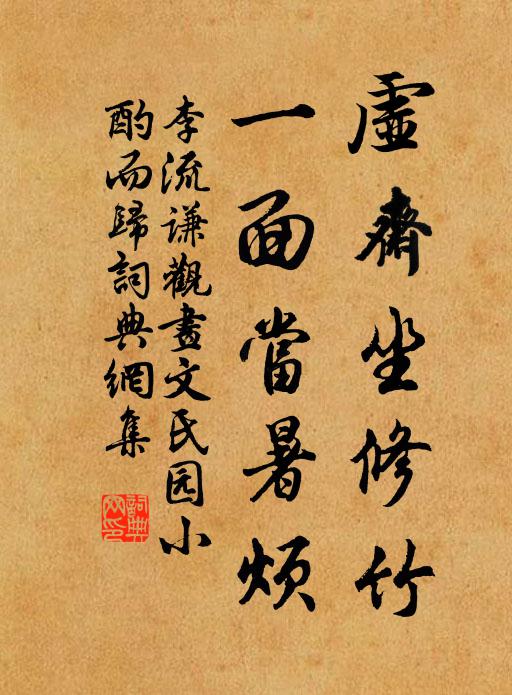 虛齋坐修竹
一面當暑煩
李流謙觀畫文氏园小
酌而歸詞典網集
詞典
网印